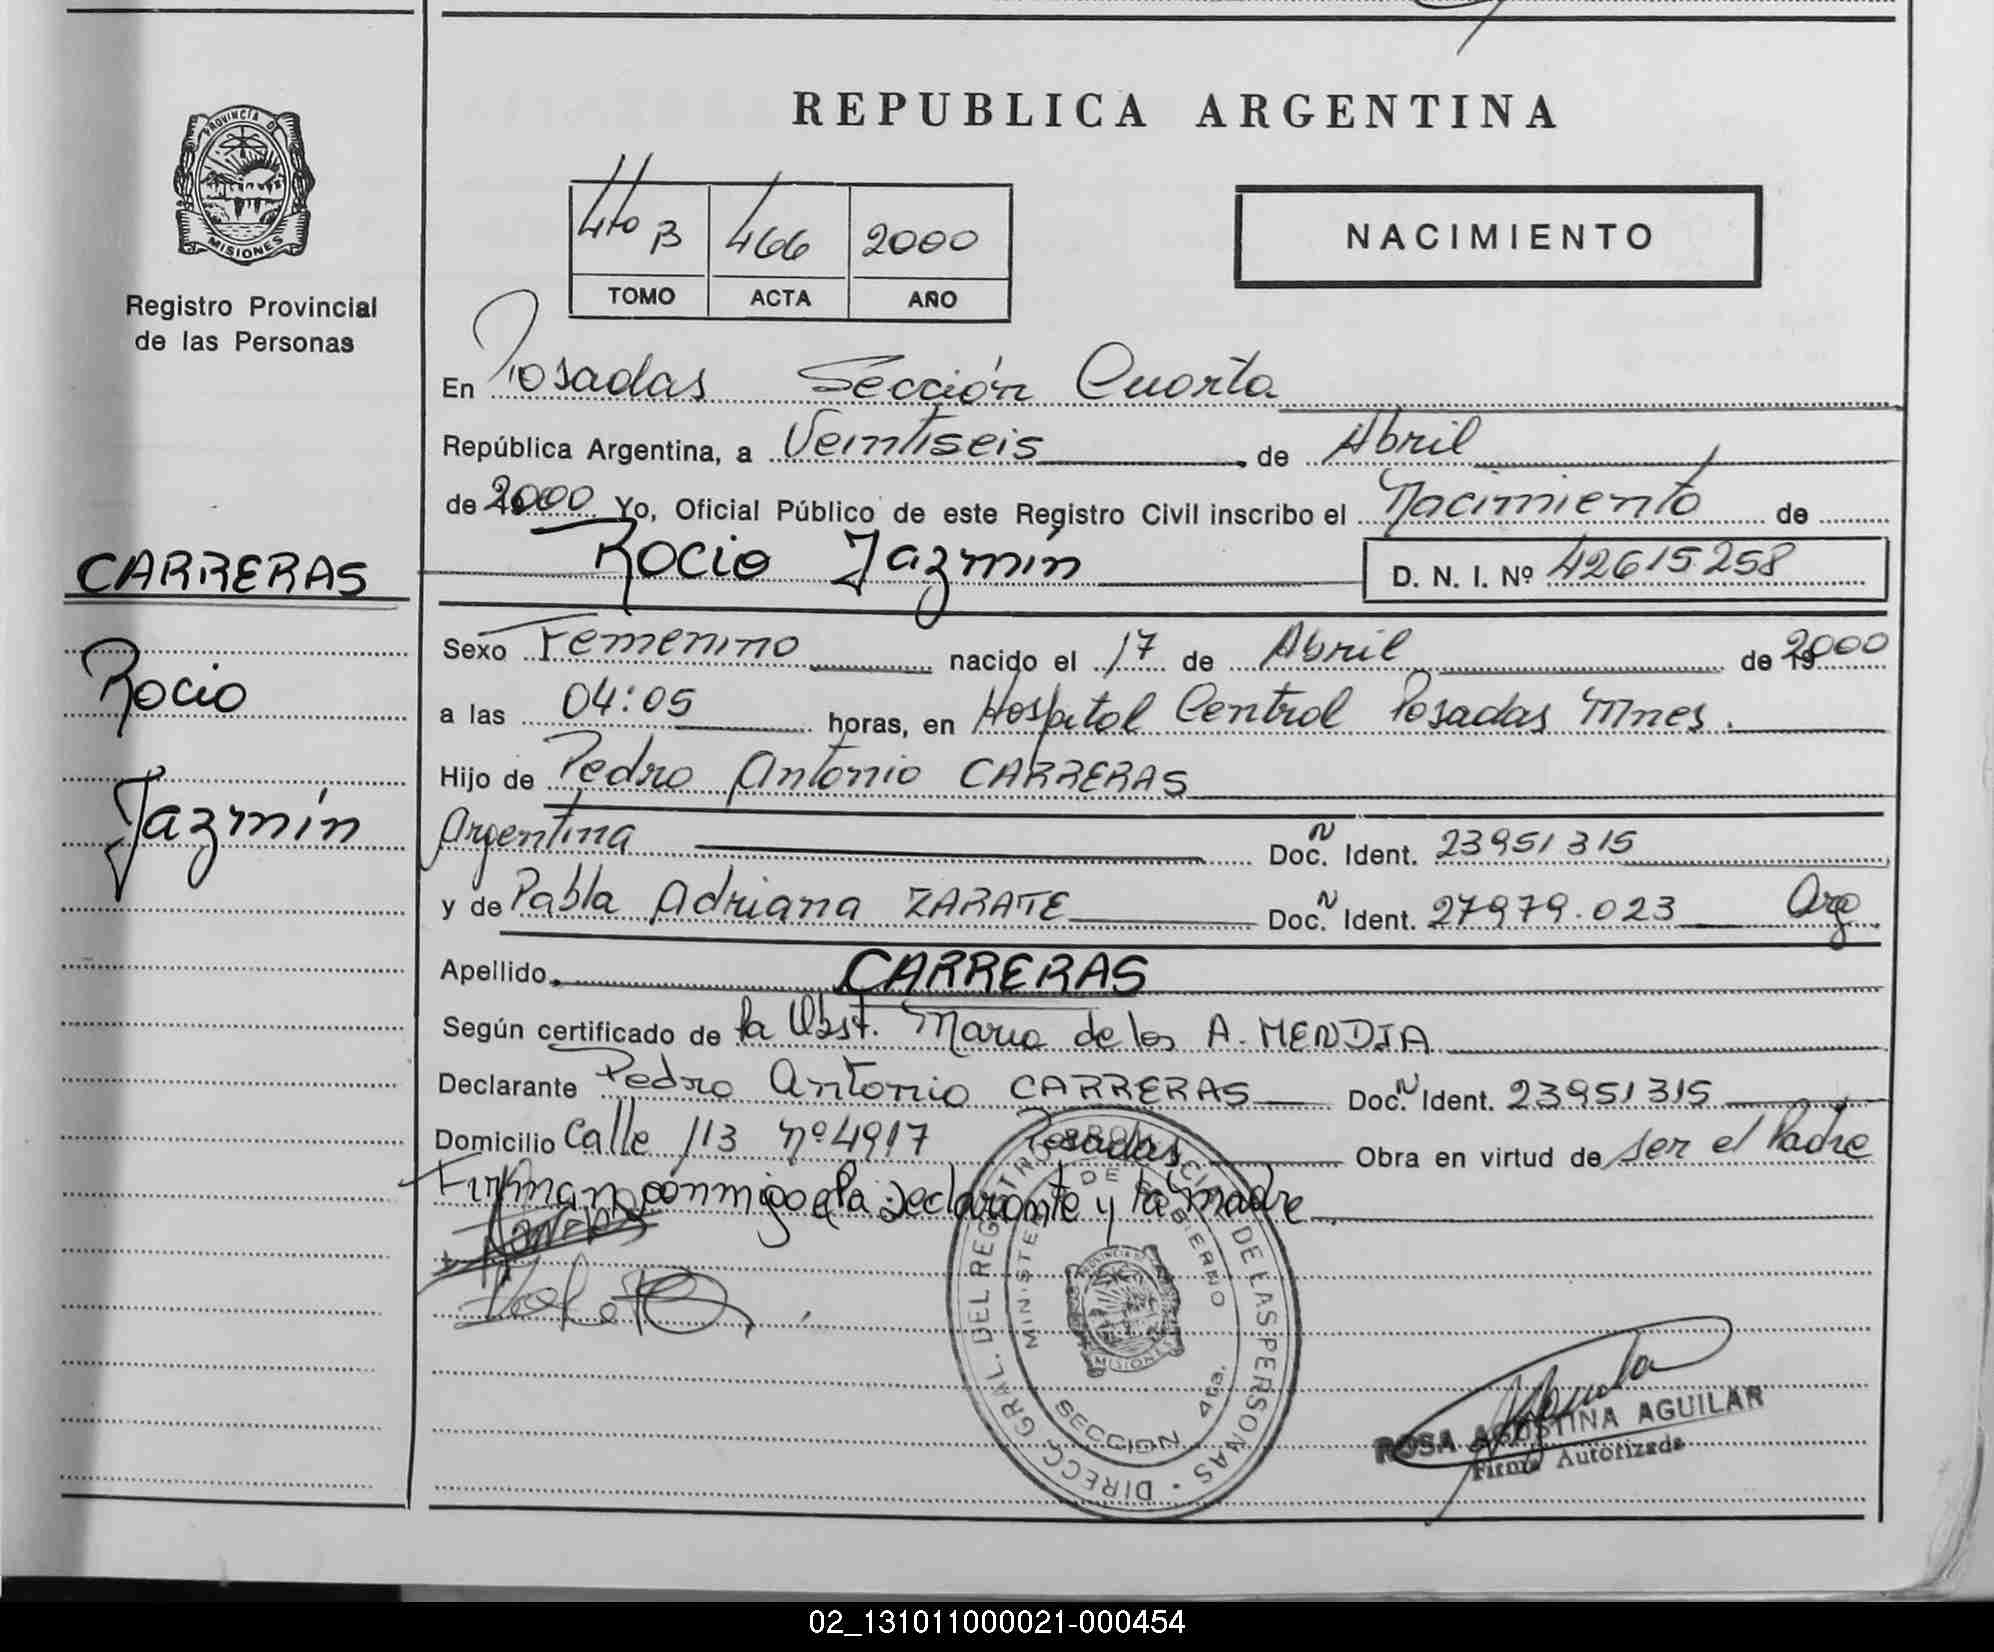 REPUBLICA ARGENTINA
PROVINCIA DE
MISIONES
Registro Provincial
de las Personas
4to B 466 2000
TOMO ACTA AÑO
NACIMIENTO
En Posadas Sección Cuarta
República Argentina, a Veintiseis de Abril
de 2000 Yo, Oficial Público de este Registro Civil inscribo el Nacimiento de
Rocio Jazmín D. N. I. Nº 42615258
CARRERAS
Rocio
Jazmín
Sexo Femenino nacido el 17 de Abril de 2000
a las 04:05 horas, en Hospital Central Posadas Mnes.
Hijo de Pedro Antonio CARRERAS
Argentina Doc. N Ident. 23951315
y de Pabla Adriana ZARATE Doc. N Ident. 27979.023 Arg
Apellido CARRERAS
Según certificado de la Obst. Maria de los A. MENDIA
Declarante Pedro Antonio CARRERAS Doc. N Ident. 23951315
Domicilio Calle 113 nº 4917 Posadas Obra en virtud de ser el Padre
Firman conmigo el declarante y la madre
DIRECC. GRAL. DEL REGISTRO PROVINCIAL DE LAS PERSONAS
MINISTERIO DE GOBIERNO
MISIONES
SECCION 4ta.
ROSA AGUSTINA AGUILAR
Firma Autorizada
02_131011000021-000454